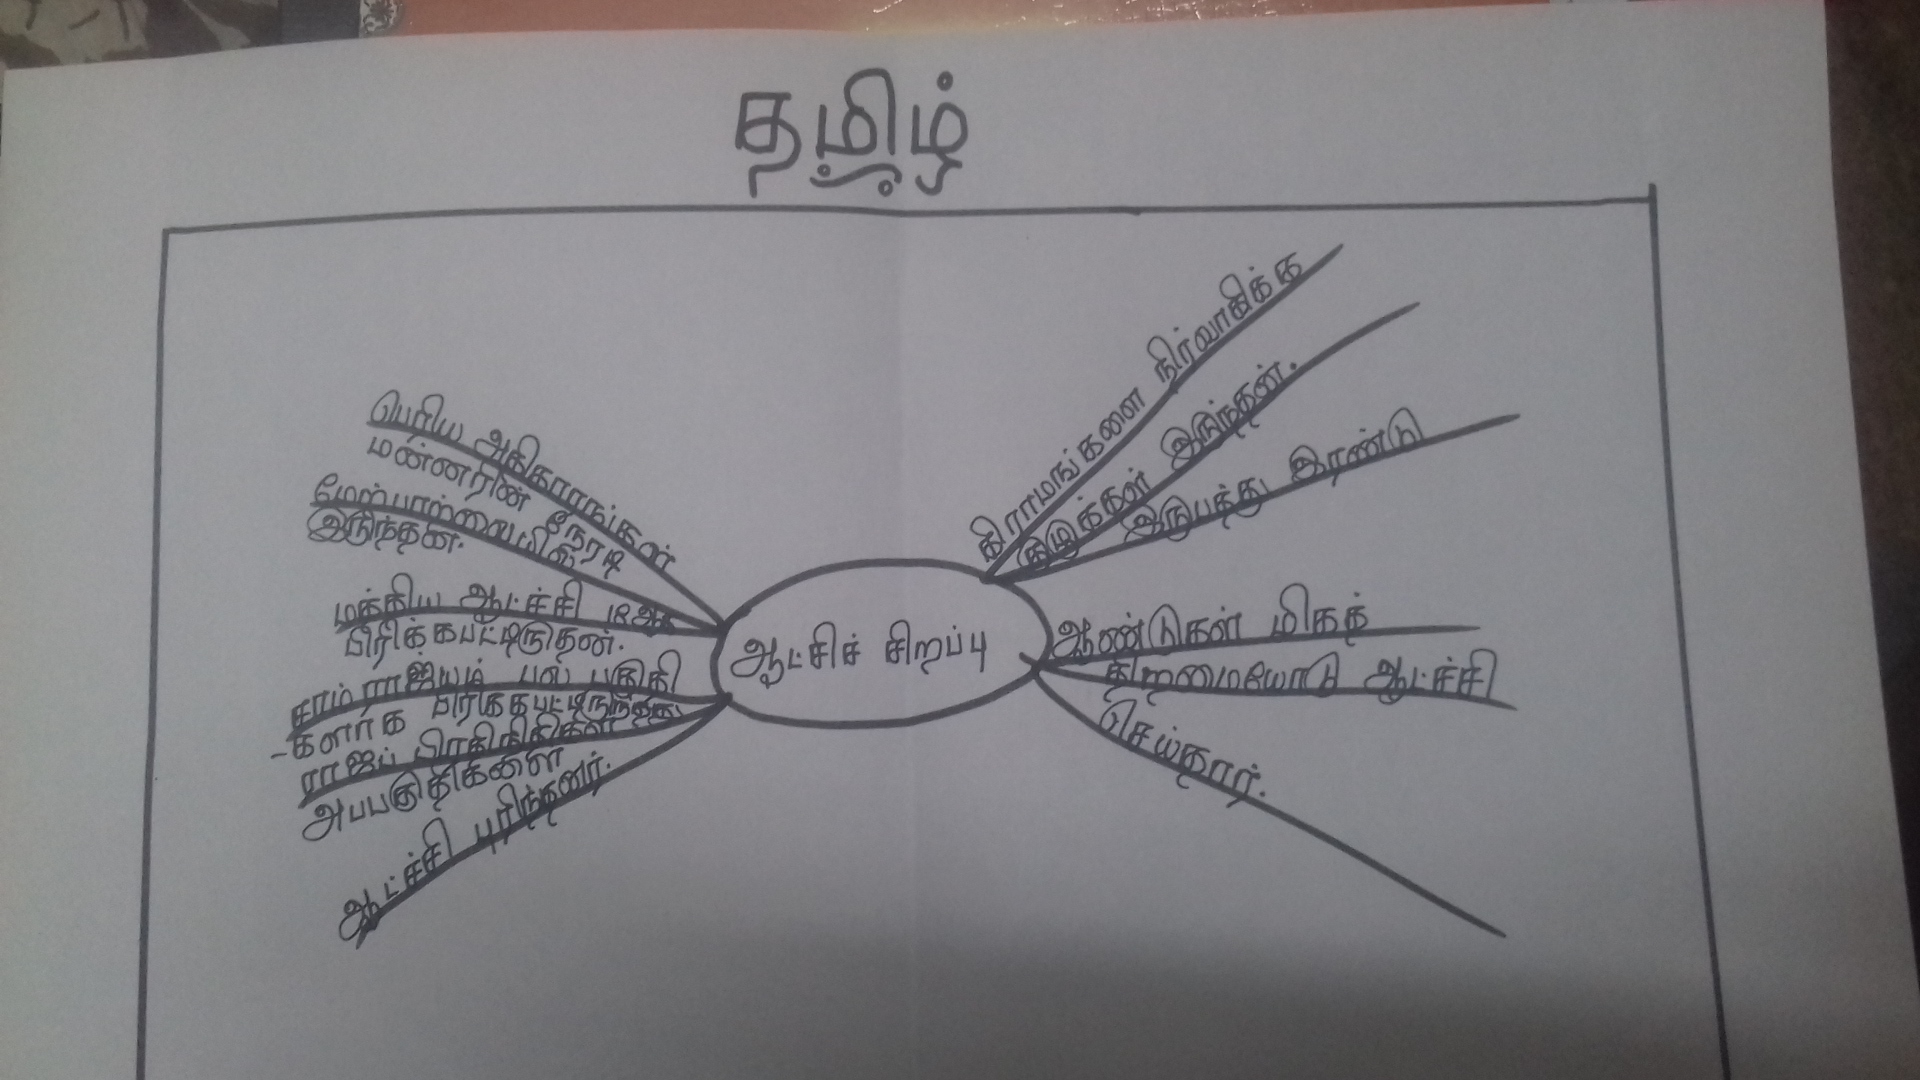 தமிழ்
ஆட்சிச் சிறப்பு
கிராமங்களை நிர்வாகிக்க
குழுக்கள் இருந்தன.
அறுபத்து இரண்டு
ஆண்டுகள் மிகத்
திறமையோடு ஆட்ச்சி
செய்தார்.
பெரிய அதிகாரங்கள்
மன்னரின் நேரடி
மேற்பார்வையில்
இருந்தன.
மத்திய ஆட்ச்சி 18ஆக
பிரிக்கபட்டிருதன.
சாம்ராஜ்யம் பல பகுதி
-களாக பிரிக்கபட்டிருந்தது
ராஜப் பிரதிநிதிகள்
அபபகுதிக்களை
ஆட்ச்சி புரிந்தனர்.